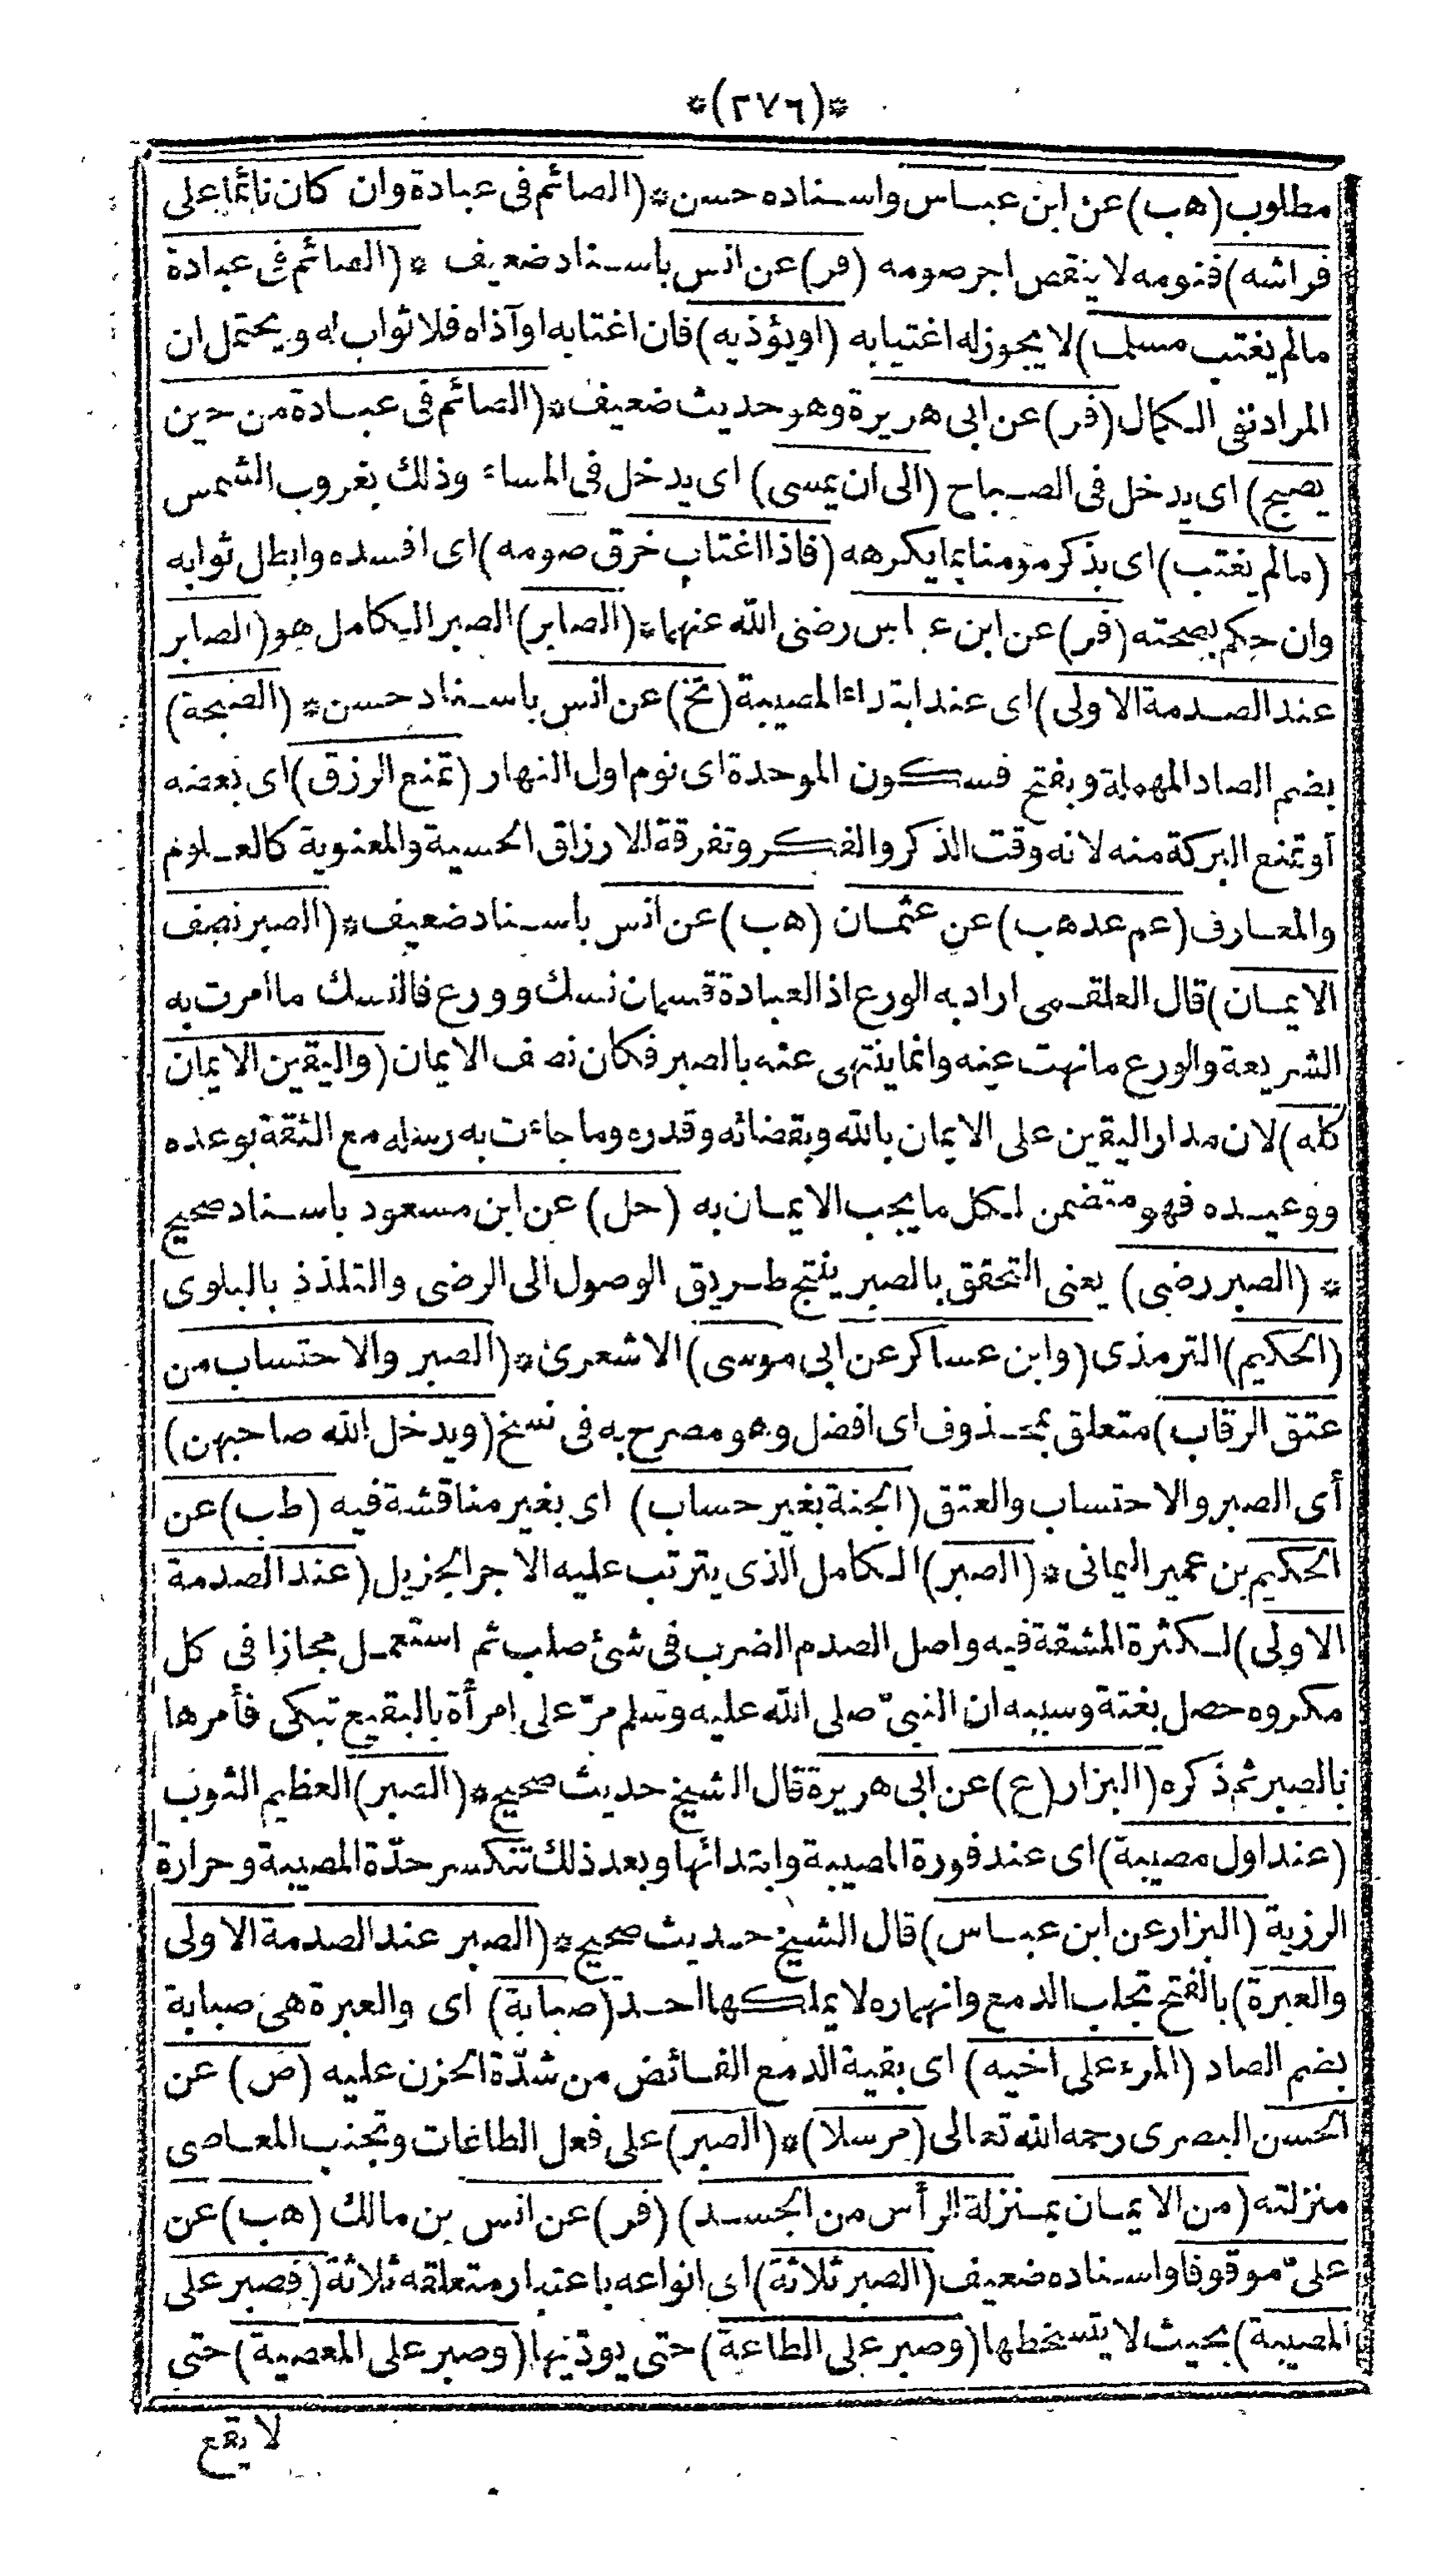 *(٢٧٦)*
مطلوب (هب) عن ابن عباس واسناده حسن*(الصائم فى عبادة وان كان نائما على
فراشه) فنومه لا ينقص اجر صومه (فر) عن انس باسناد ضعيف * (الصائم فى عبادة
مالم يغتب مسلما) لا يجوز له اغتيابه (او يؤذيه) فان اغتابه اوآذاه فلا ثواب له ويحتمل ان
المراد نفى الكمال (فر) عن ابى هريرة وهو حديث ضعيف*(الصائم فى عبادة من حين
يصبح) اى يدخل فى الصباح (الى ان يمسى) اى يدخل فى المساء وذلك بغروب الشمس
(مالم يغتب) اى يذكر مؤمنا بما يكرهه (فاذا اغتاب خرق صومه) اى افسده وابطل ثوابه
وان حكم بصحته (فر) عن ابن عباس رضى الله عنهما*(الصابر) الصبر الكامل هو (الصابر
عند الصدمة الاولى) اى عند ابتداء المصيبة (تخ) عن انس باسناد حسن* (الصبحة)
بضم الصاد المهملة وبفتح فسكون الموحدة اى نوم اول النهار (تمنع الرزق) اى بعضه
أو تمنع البركة منه لانه وقت الذكر والفكر وتفرقة الارزاق الحسية والمعنوية كالعلوم
والمعارف (عم عد هب) عن عثمان (هب) عن انس باسناد ضعيف*(الصبر نصف
الايمان) قال العلقمى اراد به الورع اذ العبادة قسمان نسك وورع فالنسك ما امرت به
الشريعة والورع ما نهت عنه وانما ينتهى عنه بالصبر فكان نصف الايمان (واليقين الايمان
كله) لان مدار اليقين على الايمان بالله وبقضائه وقدره وما جاءت به رسله مع الثقة بوعده
ووعيده فهو متضمن لكل ما يجب الايمان به (حل) عن ابن مسعود باسناد صحيح
* (الصبر رضى) يعنى التحقق بالصبر ينتج طريق الوصول الى الرضى والتلذذ بالبلوى
(الحكيم) الترمذى (وابن عساكر عن ابى موسى) الاشعرى*(الصبر والاحتساب من
عتق الرقاب) متعلق بمحذوف اى افضل وهو مصرح به فى نسخ (ويدخل الله صاحبهن)
أى الصبر والاحتساب والعتق (الجنة بغير حساب) اى بغير مناقشة فيه (طب) عن
الحكيم بن عمير اليمانى*(الصبر) الكامل الذى يترتب عليه الاجر الجزيل (عند الصدمة
الاولى) لكثرة المشقة فيه واصل الصدم الضرب فى شئ صلب ثم استعمل مجازا فى كل
مكروه حصل بغتة وسببه ان النبىّ صلى الله عليه وسلم مرّ على امرأة بالبقيع تبكى فأمرها
بالصبر ثم ذكره (البزار (ع) عن ابى هريرة قال الشيخ حديث صحيح*(الصبر) العظيم الثوب
(عند اول مصيبة) اى عند فورة المصيبة وابتدائها وبعد ذلك تنكسر حدّة المصيبة وحرارة
الرزية (البزار عن ابن عباس) قال الشيخ حديث صحيح*(الصبر عند الصدمة الاولى
والعبرة) بالفتح تجلب الدمع وانهماره لا يملكها احد (صبابة) اى والعبرة هى صبابة
بضم الصاد (المرء على اخيه) اى بقية الدمع الفائض من شدّة الحزن عليه (ص) عن
الحسن البصرى رحمه الله تعالى (مرسلا)*(الصبر) على فعل الطاعات وتجنب المعاصى
منزلته (من الايمان بمنزلة الرأس من الجسد) (فر) عن انس بن مالك (هب) عن
علىّ موقوفا واسناده ضعيف (الصبر ثلاثة) اى انواعه باعتبار متعلقه ثلاثة (فصبر على
المصيبة) بحيث لا يتسخطها (وصبر على الطاعة) حتى يوذيها (وصبر على المعصية) حتى
لا يقع